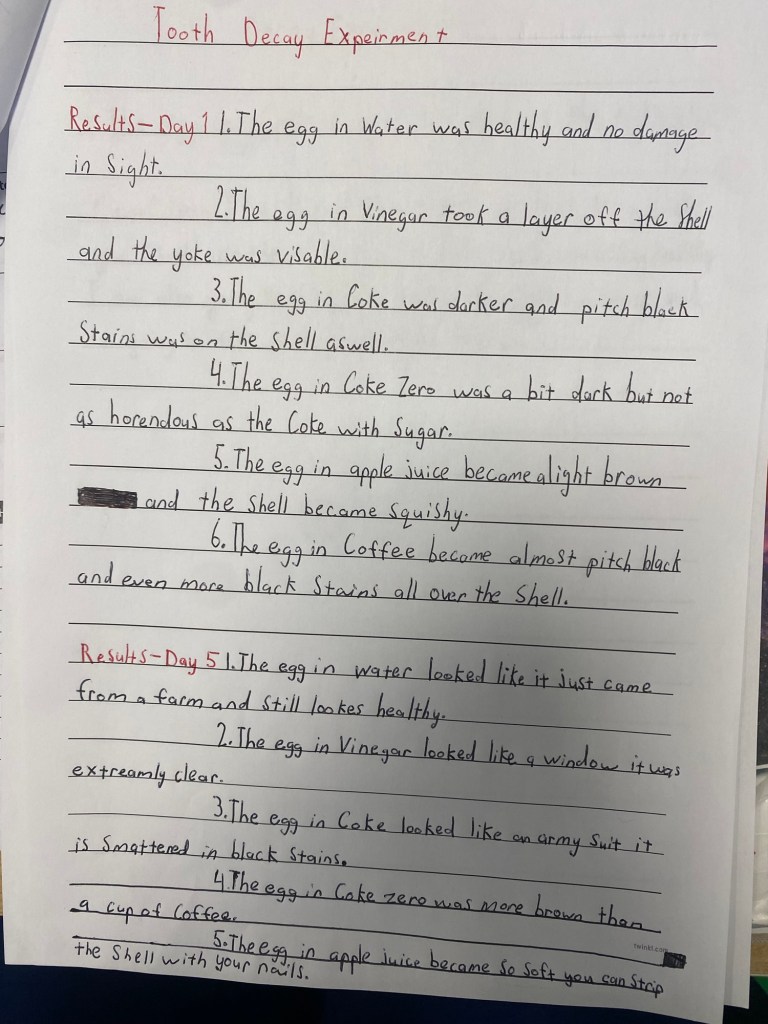 Tooth Decay Expeirment
Results-Day 1 1. The egg in Water was healthy and no damage
in Sight.
2. The egg in Vinegar took a layer off the Shell
and the yoke was visable.
3. The egg in Coke was darker and pitch black
Stains was on the Shell aswell.
4. The egg in Coke Zero was a bit dark but not
as horendous as the Coke with Sugar.
5. The egg in apple juice became alight brown
and the Shell became Squishy.
6. The egg in Coffee became almost pitch black
and even more black Stains all over the Shell.
Results-Day 5 1. The egg in water looked like it just came
from a farm and Still lookes healthy.
2. The egg in Vinegar looked like a window it was
extreamly clear.
3. The egg in Coke looked like an army Suit it
is Smattered in black Stains.
4. The egg in Coke zero was more brown than
a cup of Coffee.
twinkl.com
5. The egg in apple juice became So Soft you can Strip
the Shell with your nails.